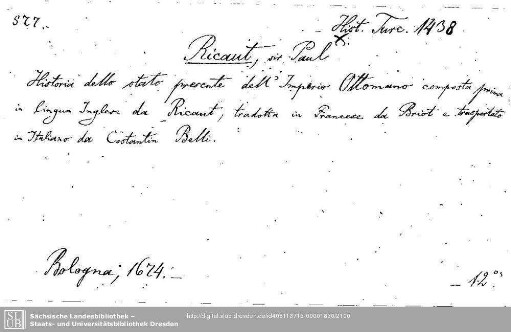 S77.
Hist. Turc. 1438
Ricaut, sir Paul
Historia dello stato presente dell' Imperio Ottomano composta prima
in lingua Inglese da Ricaut, tradotta in Francese da Briot e trasportata
in Italiano da Costantin Belli.
Bologna, 1674.
12°
Sächsische Landesbibliothek –
Staats- und Universitätsbibliothek Dresden